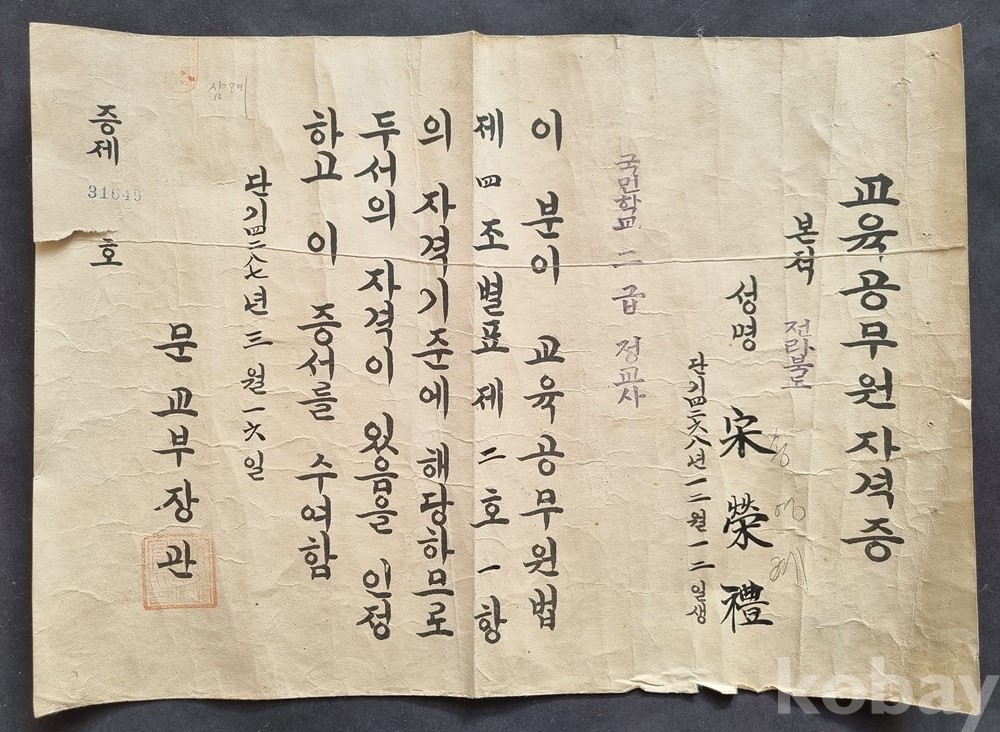 교육공무원자격증
본적 전라북도
성명 宋榮禮
송영례
단기四二六八年一二월一二일생
국민학교 二급 정교사
이 분이 교육공무원법
제四조별표제二호一항
의 자격기준에 해당하므로
두서의 자격이 있음을 인정
하고 이 증서를 수여함
단기四二八七년三월一六일
문교부장관
증제 31649 호
삼례
kobay